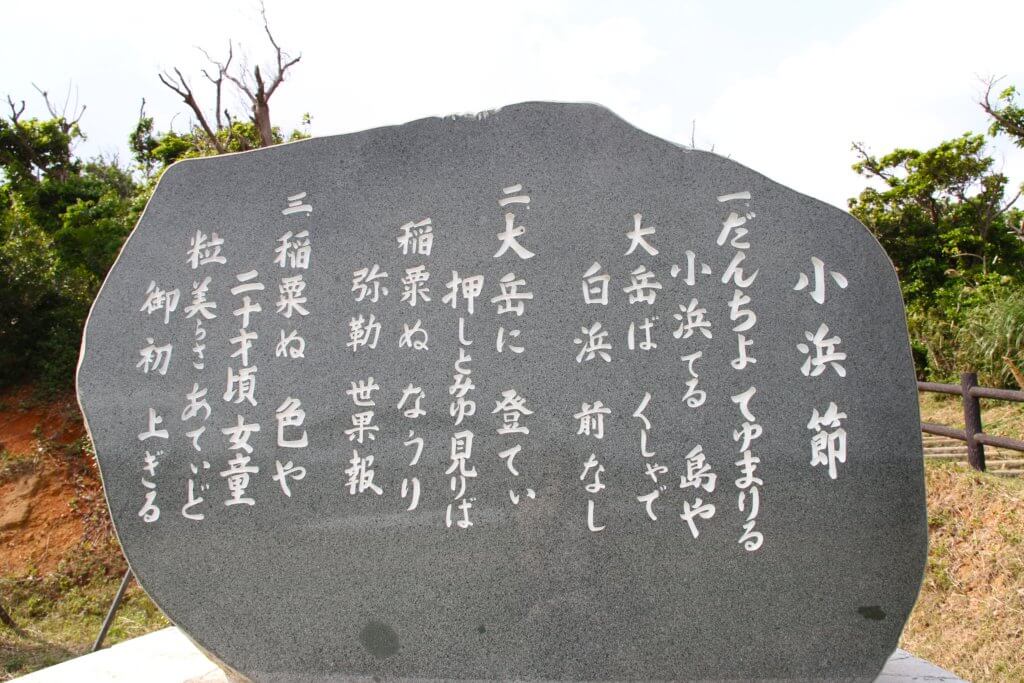 小浜節
一だんちよ てゆまりる
小浜てる 島や
大岳ば くしゃで
白浜 前なし
二大岳に 登てぃ
押しとみゆ見りば
稲粟ぬ なうり
弥勒 世果報
三稲粟ぬ 色や
二十才頃女童
粒美らさ あてぃど
御初 上ぎる